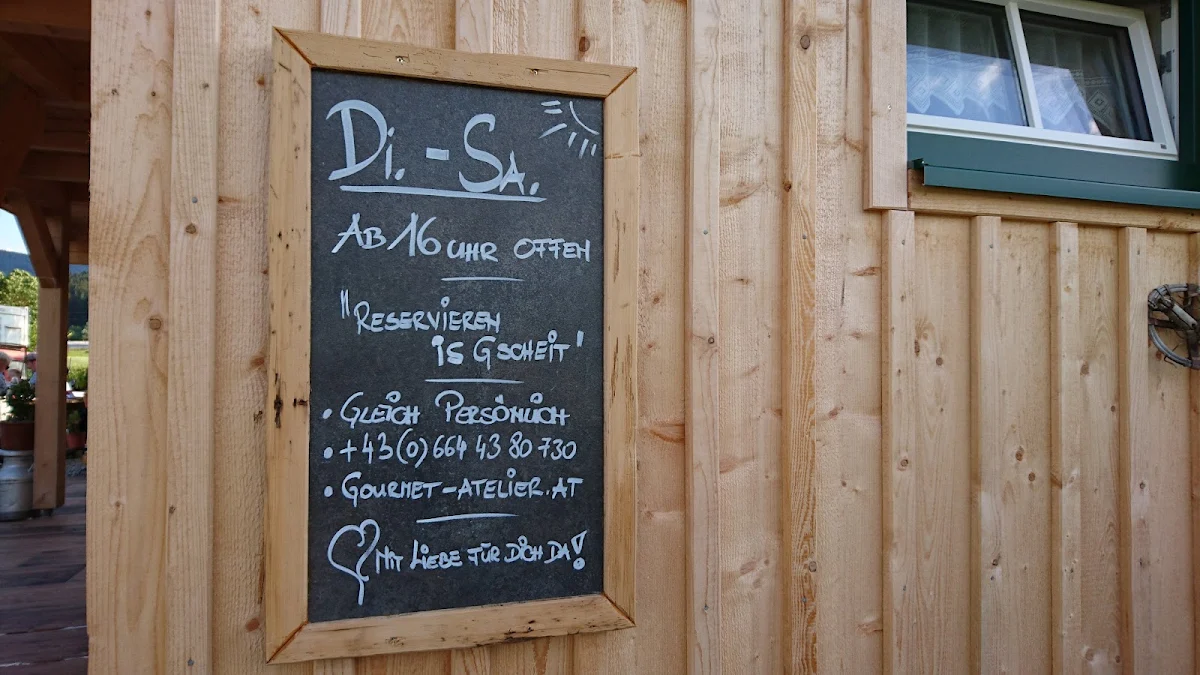 Di. - Sa.
AB 16 UHR OFFEN
"RESERVIEREN
iS GSCHEIT"
• GLEICH PERSÖNLICH
• +43(0) 664 43 80 730
• GOURMET-ATELIER.AT
MIT LIEBE FÜR DICH DA!